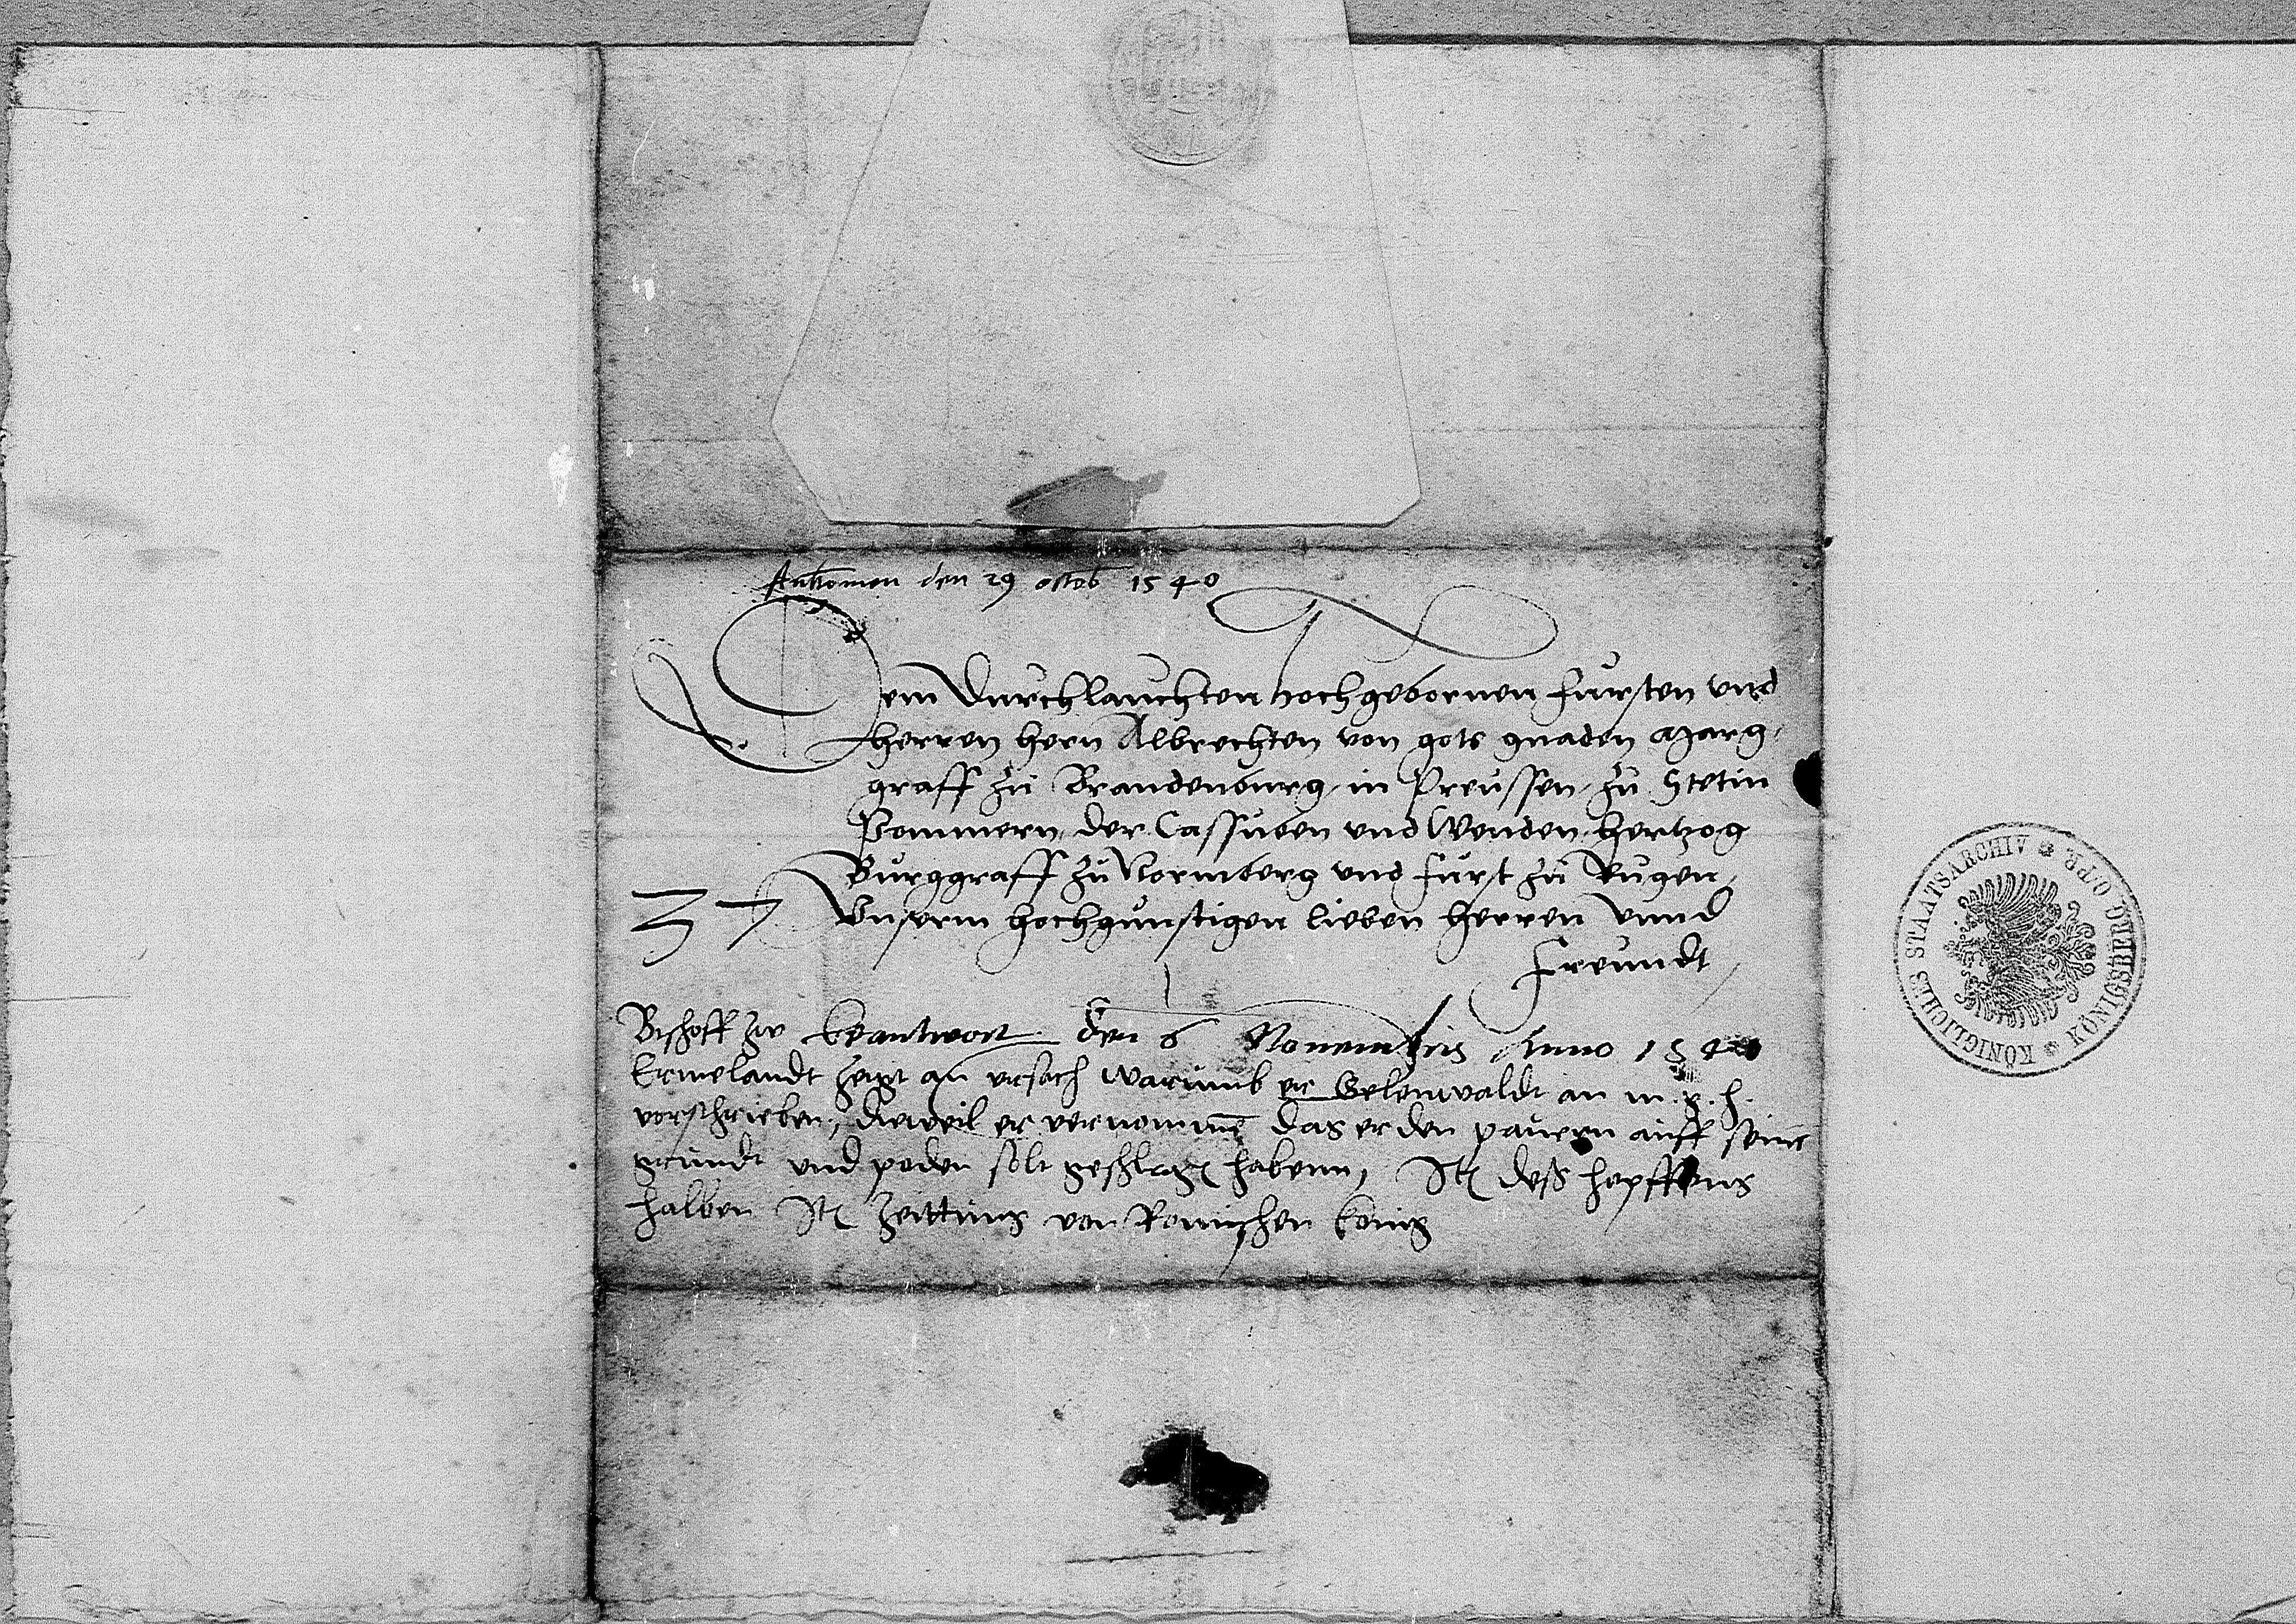 Ankomen den 29 octob 1540
Dem Durchlauchten hochgebornen fursten vnd
herren hern Albrechten von gots gnaden Marg-
graff zu Brandenburg, in Preussen, zu Stetin
Pommern, der Cassuben vnd Wenden hertzog
Burggraff zu Normberg vnd furst zu Rugen,
Vnserm hochgunstigen lieben herren vnnd
freundt,
37
Bischoff zw beantwort den 6 Nouembris Anno 1540
Ermelandt zeigt an vrsach warumb er Gelenwaldt an m. g. h.
vorschrieben, dieweil er vernommen das er den pauern auff seine
grundt vnd poden solt geschlagen habenn, Itē deß hopffens
halben Itē Zeittung von Romischen konig
KÖNIGLICHES STAATSARCHIV * KÖNIGSBERG O/PR *